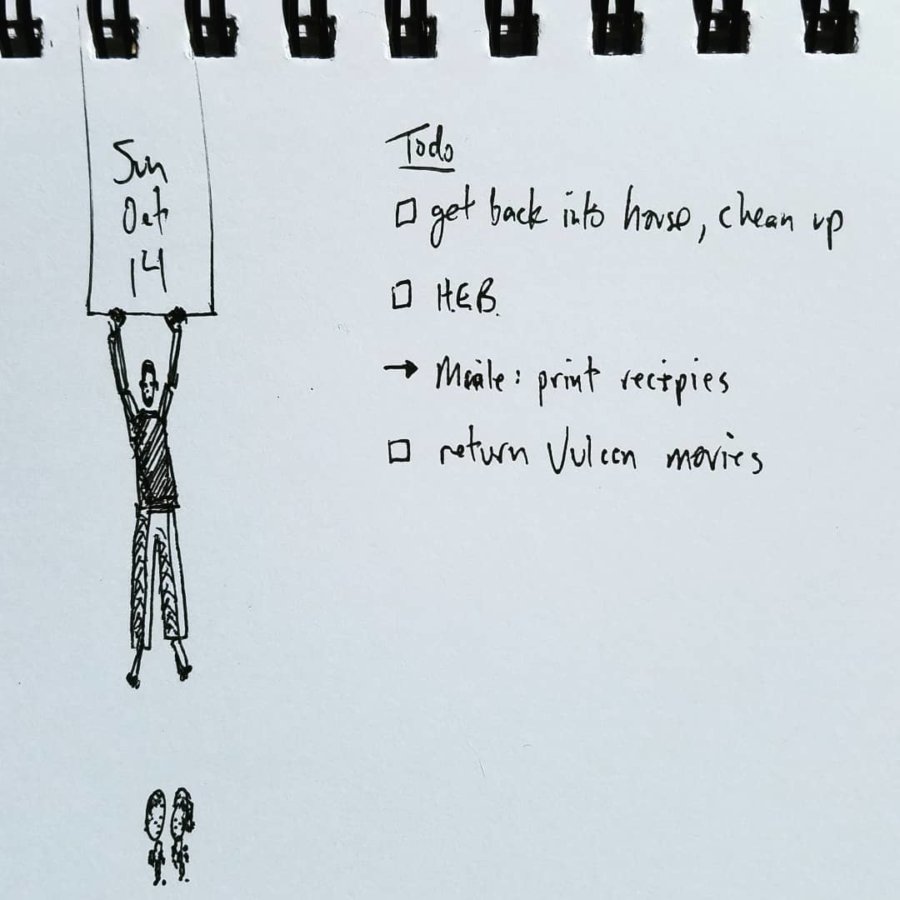 Sun
Oct
14
Todo
get back into house, clean up
H.E.B.
→ : print recipies
return Vulcan movies